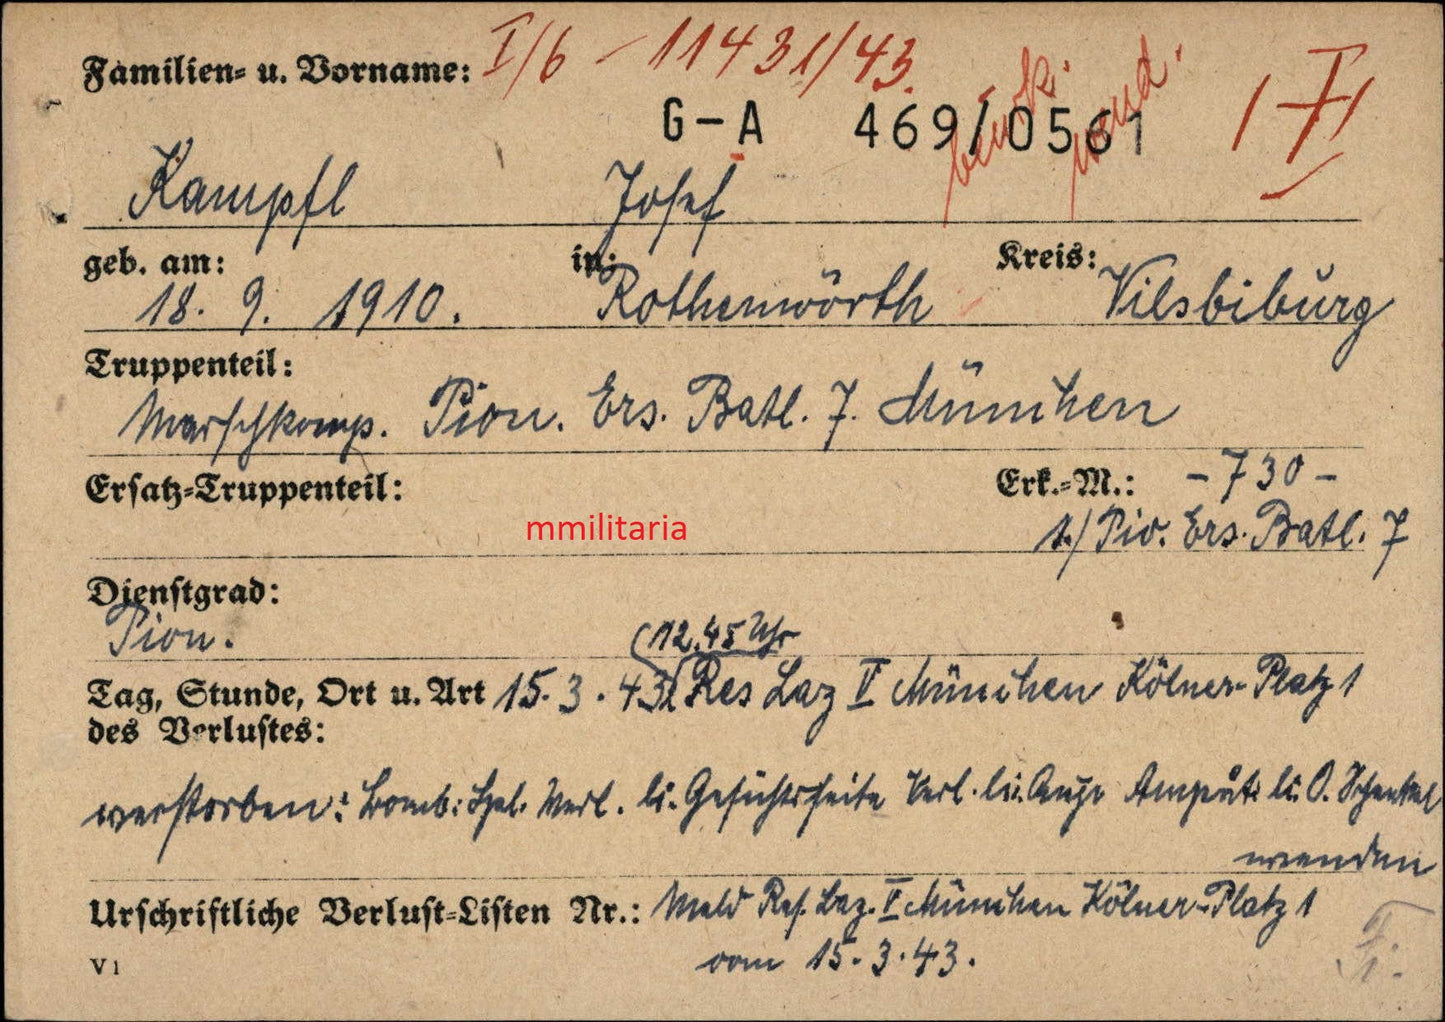 Familien- u. Vorname: I/6 - 11431/43.
G-A 469/0561
Kampfl Josef
geb. am: in: Kreis:
18. 9. 1910. Rothenwörth Vilsbiburg
Truppenteil:
Marschkomp. Pion. Ers. Batl. 7. München
Ersatz-Truppenteil: Erk.-M.: - 730 -
mmilitaria
1./ Pio. Ers. Batl. 7
Dienstgrad:
Pion. (12.45 Uhr
Tag, Stunde, Ort u. Art 15. 3. 43 Res Laz II München Kölner-Platz 1
des Verlustes:
verstorben: Bomb. Spl. Verl. li. Gesichtsseite Verl. li. Auge Amput. li. O. Schenkel
wenden
Urschriftliche Verlust-Listen Nr.: Meld Res. Laz. II München Kölner-Platz 1
V 1 vom 15. 3. 43.